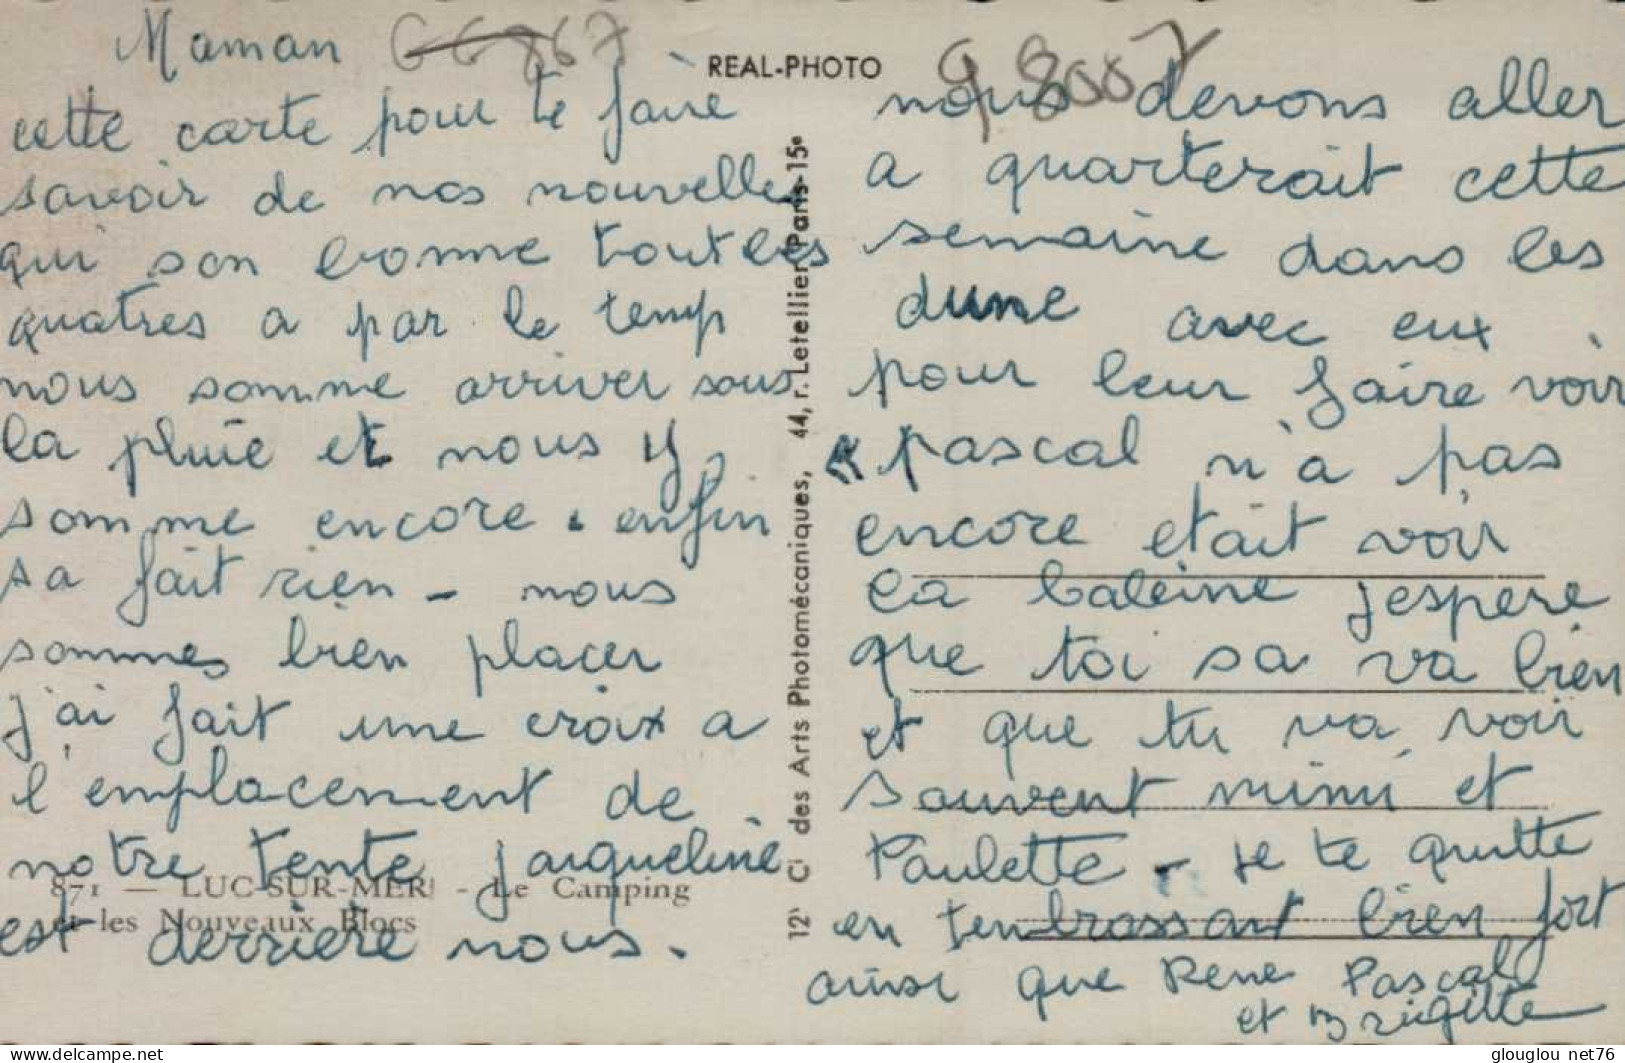 Maman
GG867
cette carte pour te faire
savoir de nos nouvelles
qui son bonne toutles
quatres a par le temp
nous somme arriver sous
la pluie et nous y
somme encore. enfin
sa fait rien - nous
sommes bien placer
j'ai fait une croix a
l'emplacement de
notre tente jacqueline
est derriere nous.
871 — LUC-SUR-MER - Le Camping
et les Nouveaux Blocs
REAL-PHOTO
12 Ci des Arts Photomécaniques, 44, r. Letellier, Paris-15e
nous devons aller
a quarterait cette
semaine dans les
dune avec eux
pour leur faire voir
pascal n'a pas
encore etait voir
la baleine jespere
que toi sa va bien
et que tu va voir
souvent mimi et
Paulette - je te quitte
en tenbrassant bien fort
ainsi que Rene Pascal
et Brigitte
glouglou net76